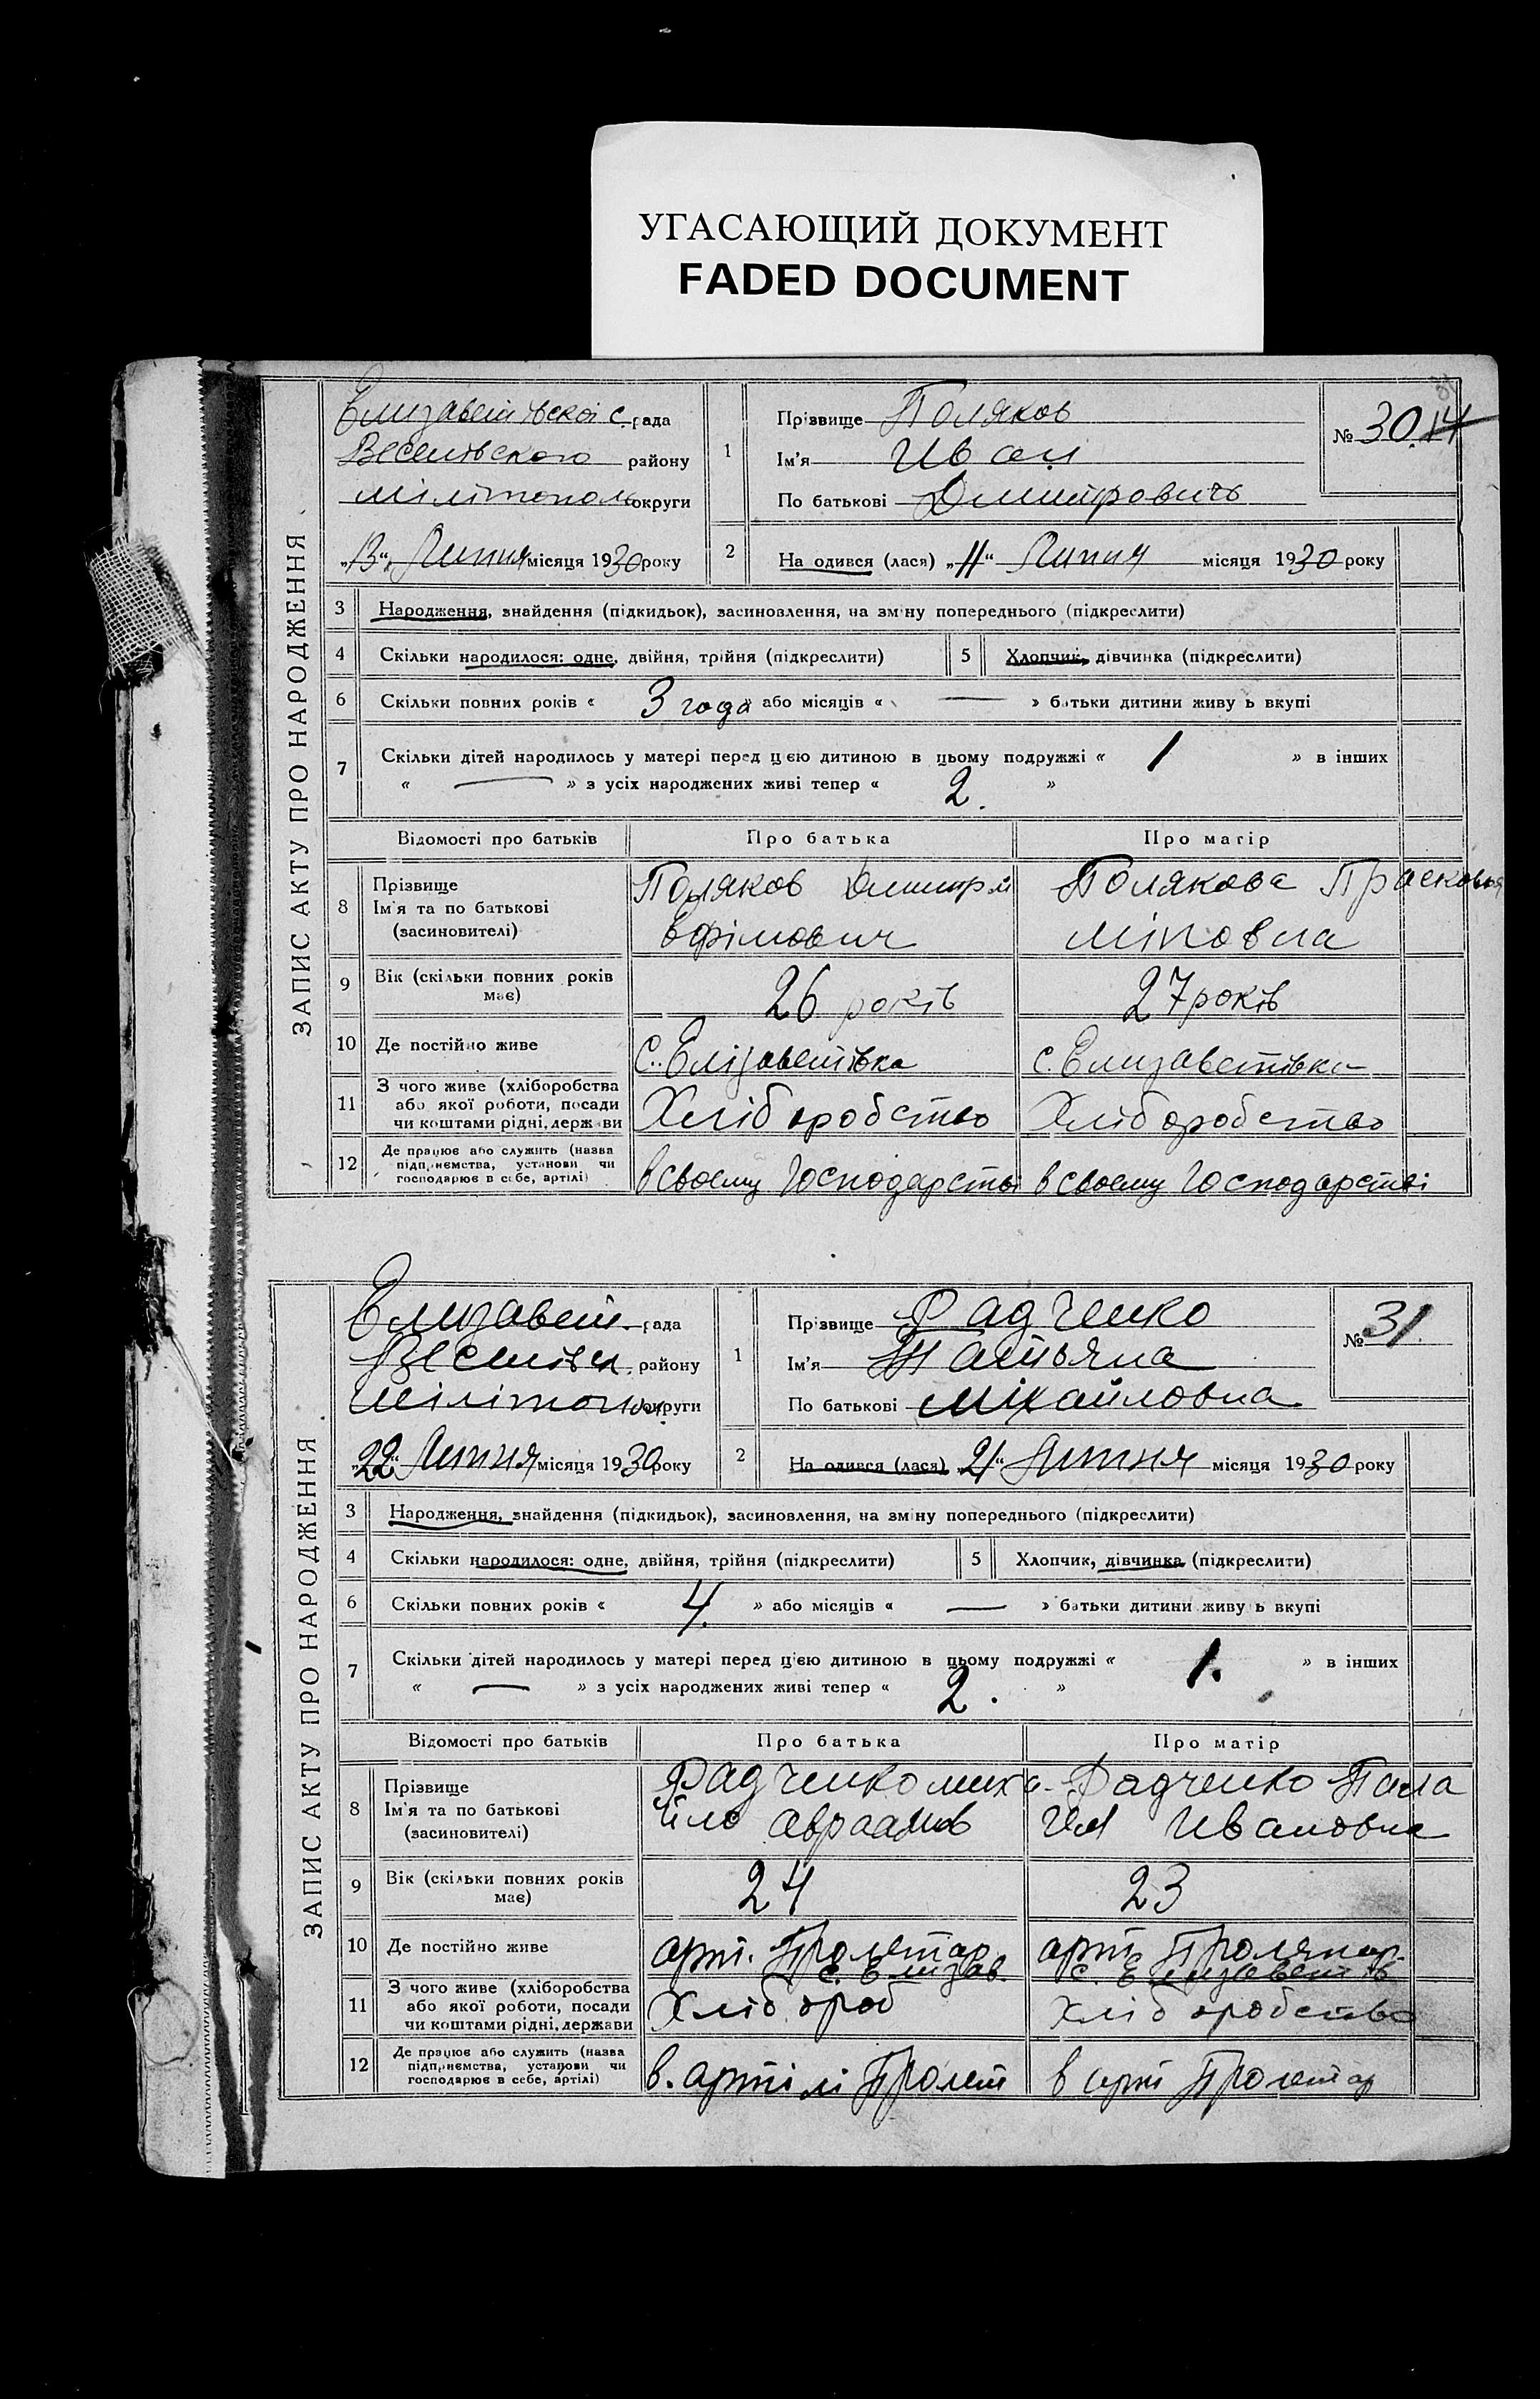 УГАСАЮЩИЙ ДОКУМЕНТ
FADED DOCUMENT
ЗАПИС АКТУ ПРО НАРОДЖЕННЯ
Елизаветівскоі с. рада
Веселівского району
Мілітополь округи
„13“ Липня місяця 1930 року
1
Прізвище Поляков
Ім'я Иван
По батькові Дмитровичь
№ 30. 14
2
На одився (лася) „11“ Липня місяця 1930 року
3 Народження, знайдення (підкидьок), засиновлення, на зміну попереднього (підкреслити)
4 Скільки народилося: одне, двійня, трійня (підкреслити) 5 Хлопчик, дівчинка (підкреслити)
6 Скільки повних років « 3 года » або місяців « — » батьки дитини живу ь вкупі
7 Скільки дітей народилось у матері перед цією дитиною в цьому подружжі « 1 » в інших
« — » з усіх народжених живі тепер « 2. »
Відомості про батьків Про батька Про матір
8 Прізвище Ім'я та по батькові (засиновителі) Поляков Дмитрій Полякова Прасковья
Єфімович Міновна
9 Вік (скільки повних років має) 26 років 27 років
10 Де постійно живе с. Елізаветівка с. Елизаветівка
11 З чого живе (хліборобства або якої роботи, посади чи коштами рідні, держави Хліборобство Хліборобство
12 Де працює або служить (назва підприємства, установи чи господарює в себе, артілі) в своему Господарстві в своему Господарстві
ЗАПИС АКТУ ПРО НАРОДЖЕННЯ
Елизавет. рада
Веселівск. району
Мілітопол. округи
„22“ Липня місяця 1930 року
1
Прізвище Радченко
Ім'я Татьяна
По батькові Міхайловна
№ 31.
2
На одився (лася) „21“ Липня місяця 1930 року
3 Народження, знайдення (підкидьок), засиновлення, на зміну попереднього (підкреслити)
4 Скільки народилося: одне, двійня, трійня (підкреслити) 5 Хлопчик, дівчинка (підкреслити)
6 Скільки повних років « 4. » або місяців « — » батьки дитини живу ь вкупі
7 Скільки дітей народилось у матері перед цією дитиною в цьому подружжі « 1. » в інших
« — » з усіх народжених живі тепер « 2. »
Відомості про батьків Про батька Про матір
8 Прізвище Ім'я та по батькові (засиновителі) Радченко Миха- Радченко Пала
йло Авраамов гея Ивановна
9 Вік (скільки повних років має) 24 23
10 Де постійно живе арт. Пролетар. арт Пролетар.
с. Елизав. с. Елизаветів
11 З чого живе (хліборобства або якої роботи, посади чи коштами рідні, держави Хлібороб Хліборобство
12 Де працює або служить (назва підприємства, установи чи господарює в себе, артілі) в. артілі Пролет в арт Пролетар